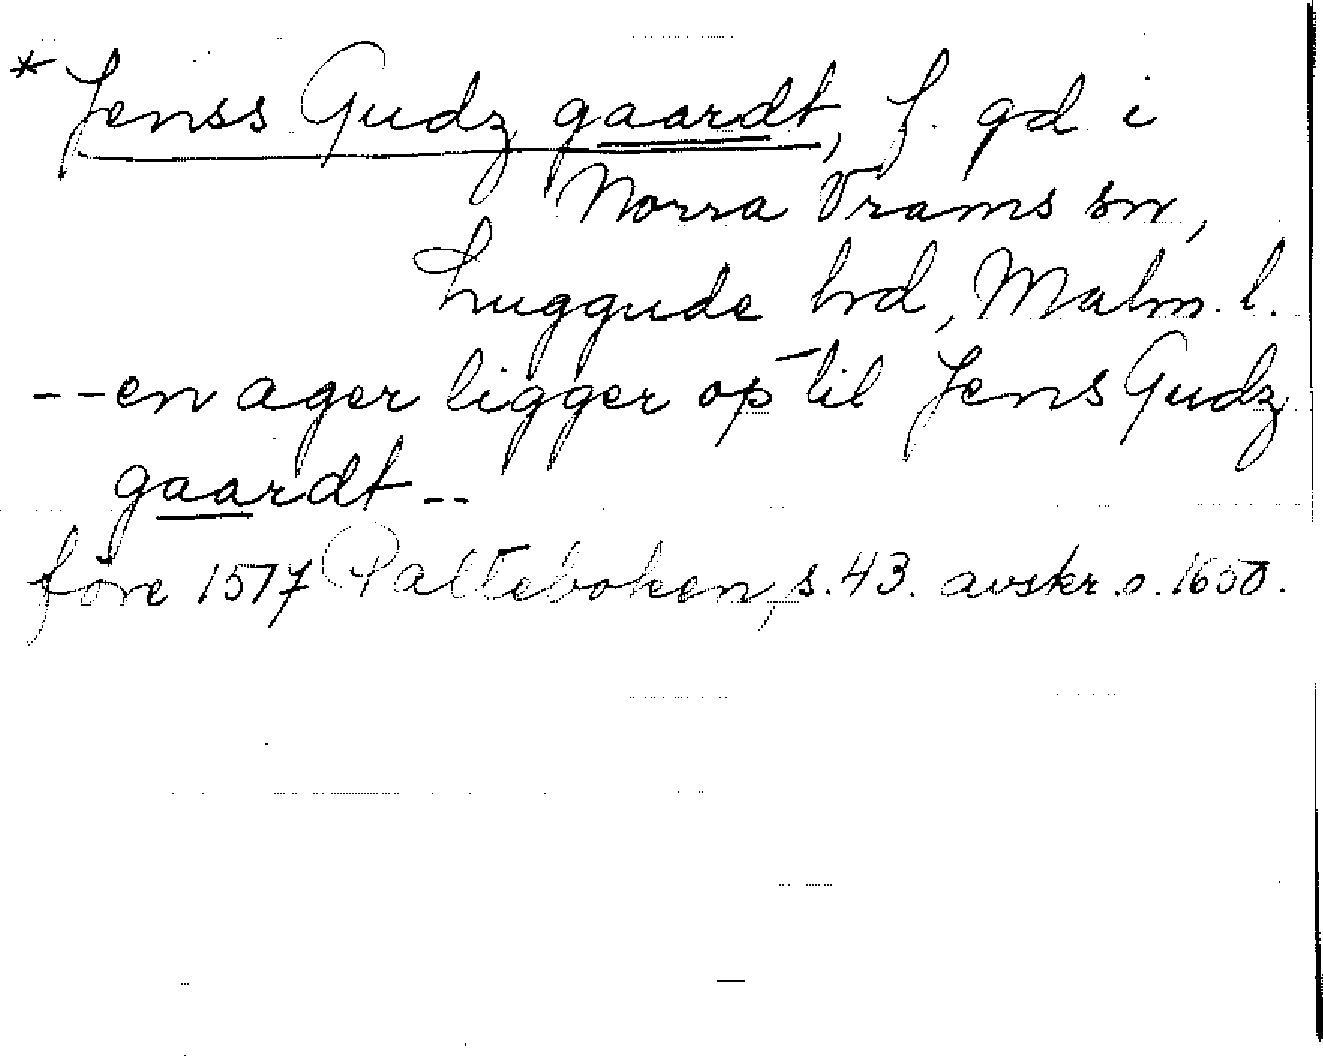 * Jenss Gudz gaardt, f. gd i
Norra Vrams sn,
Luggude hd, Malm. l.
-- en ager ligger op til Jens Gudz
gaardt --
före 1577 Palteboken, s. 43. avskr. o. 1650.